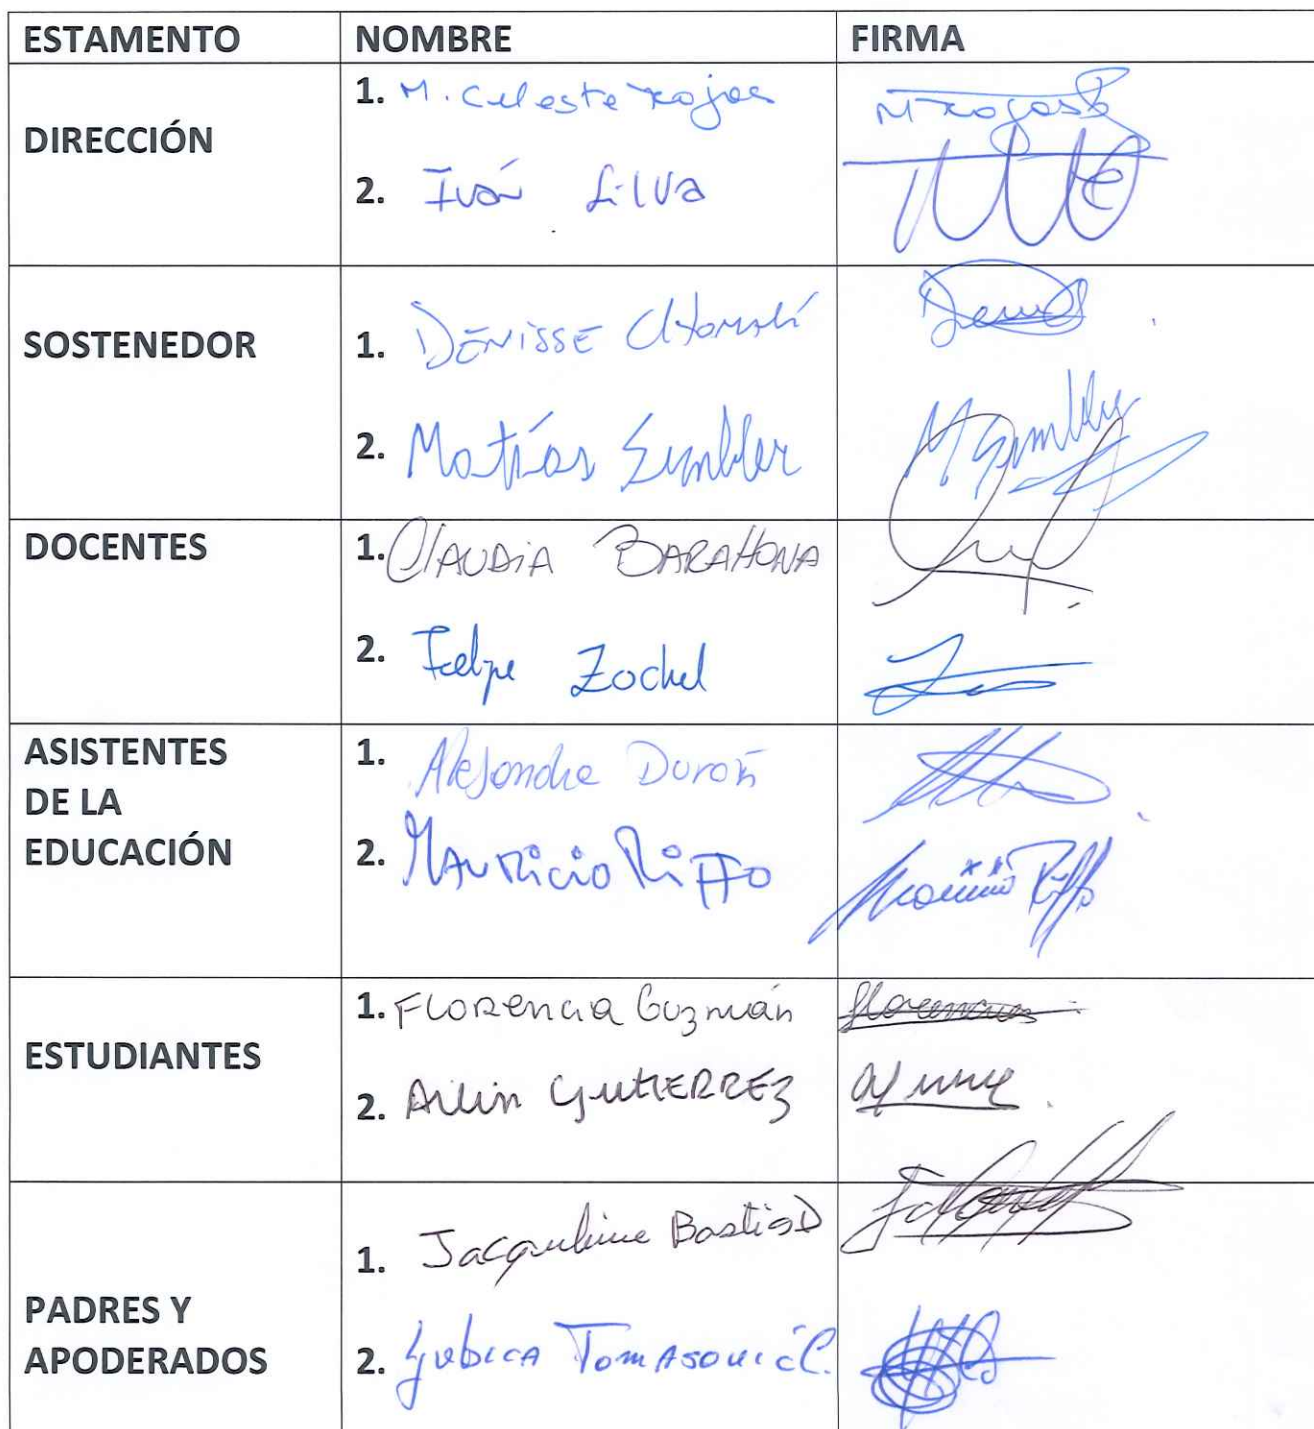 ESTAMENTO NOMBRE FIRMA
DIRECCIÓN
1. M. Celeste Rojas
2. Iván Silva
SOSTENEDOR
1. DENISSE
2. Matías
DOCENTES
1. CLAUDIA BARAHONA
2. Felipe Zochel
ASISTENTES
DE LA
EDUCACIÓN
1. Alejandra Durán
2. MAURICIO RIFFO
ESTUDIANTES
1. FLORENCIA Guzmán
2. Ailin GUTIERREZ
PADRES Y
APODERADOS
1. Jacqueline Bastias
2. TOMASOVIC